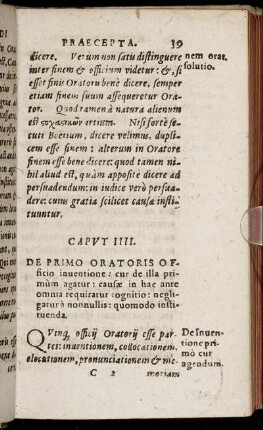 PRAECEPTA. 39
dicere. Verum non satis distinguere
inter finem & officium videtur: &, si
esset finis Oratoris benè dicere, semper
etiam finem suum assequeretur Ora-
tor. Quod tamen à natura alienum
est ςοχαςικῶν artium. Nisi fortè se-
cuti Boetium, dicere velimus, dupli-
cem esse finem: alterum in Oratore
finem esse bene dicere: quod tamen ni-
hil aliud est, quàm appositè dicere ad
persuadendum: in iudice verò persua-
dere: cuius gratia scilicet causæ insti-
tuuntur.
nem orat.
solutio.
CAPVT IIII.
DE PRIMO ORATORIS OF-
ficio inuentione: cur de illa pri-
mùm agatur: causæ in hac ante
omnia requiratur cognitio: negli-
gatur à nonnullis: quomodo insti-
tuenda.
QVinq, officij Oratorij esse par-
tes: inuentionem, collocationem,
elocutionem, pronunciationem & me-
De Inuen-
tione pri-
mò cur
agendum.
C 2 moriam